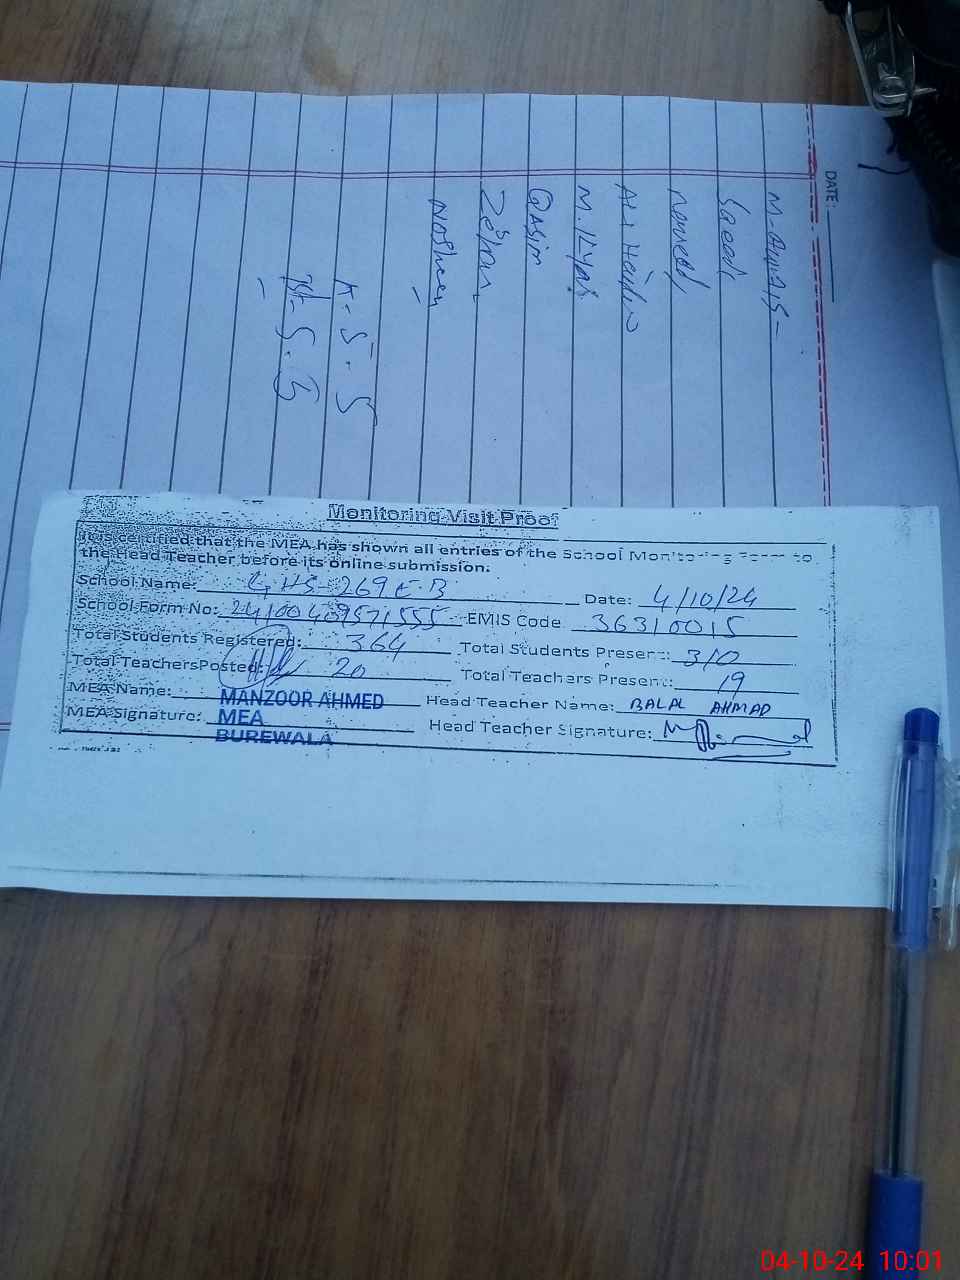 DATE:
M. Awais
Saeed
Naveed
Ali Haider
M. Ilyas
Qasim
Nosheen
Monitoring Visit Proof
It is certified that the MEA has shown all entries of the School Monitoring Form to
the Head Teacher before its online submission.
School Name: GHS 269 E.B Date: 4/10/24
School Form No: 24100409571555 EMIS Code 36310015
Total Students Registered: 364 Total Students Present: 310
Total Teachers Posted: 20 Total Teachers Present: 19
MEA Name: MANZOOR AHMED Head Teacher Name: BALAL AHMAD
MEA Signature: MEA Head Teacher Signature:
BUREWALA
04-10-24 10:01